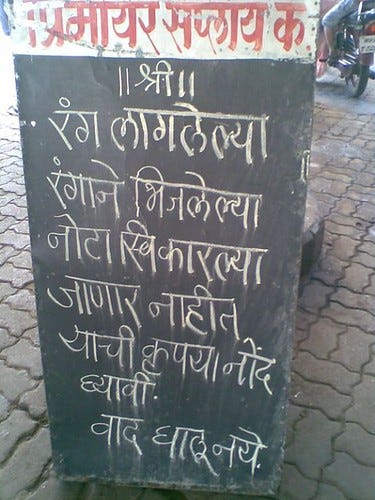 प्रिमीयर सप्लाय कं.
॥ श्री ॥
रंग लागलेल्या
रंगाने भिजलेल्या
नोटा स्विकारल्या
जाणार नाहीत
याची कृपया नोंद
घ्यावी.
वाद घालू नये.